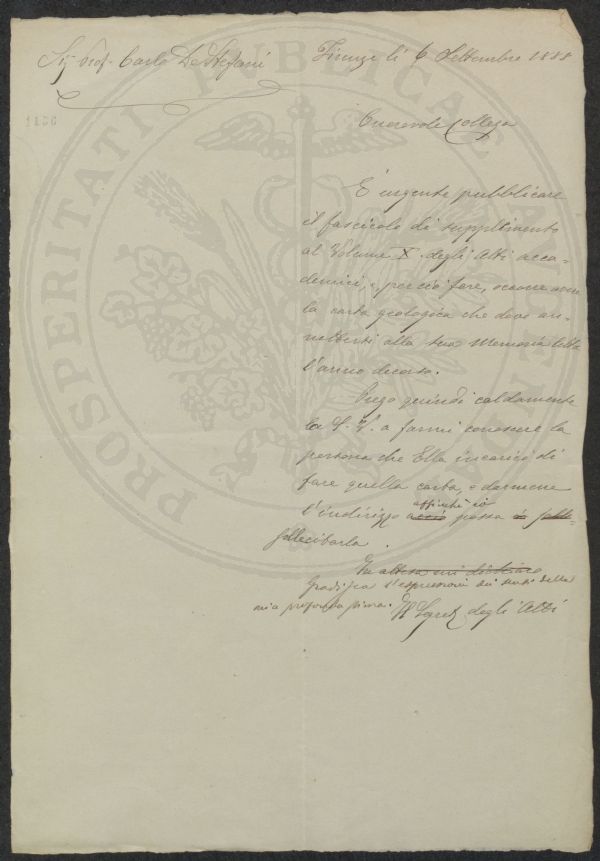 Sig Prof. Carlo De Stefani
Firenze li 6 Settembre 1888
1436
Onorevole Collega
È urgente pubblicare
il fascicolo di supplimento
al Volume X. degli Atti acca-
demici, e, perciò fare, occorre avere
la carta geologica che deve an-
nettersi alla sua Memoria letta
l'anno decorso.
Prego quindi caldamente
la S. V. a farmi conoscere la
persona che Ella incaricò di
fare quella carta, e darmene
l'indirizzo acciò affinché io possa
sollecitarla.
In attesa mi dichiaro
Gradisca l'espressioni dei sensi della
mia profonda stima.
Il Segret degli Atti
PROSPERITATI PUBLICAE AUGENDAE